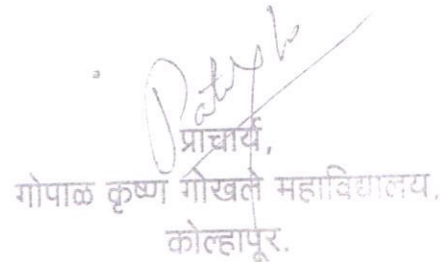 प्राचार्य,
गोपाळ कृष्ण गोखले महाविद्यालय.
कोल्हापूर.